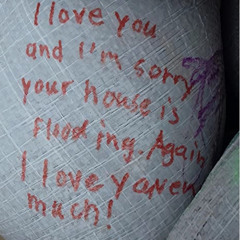 I love you
and I'm sorry
your house is
flooding. Again
I love
much!